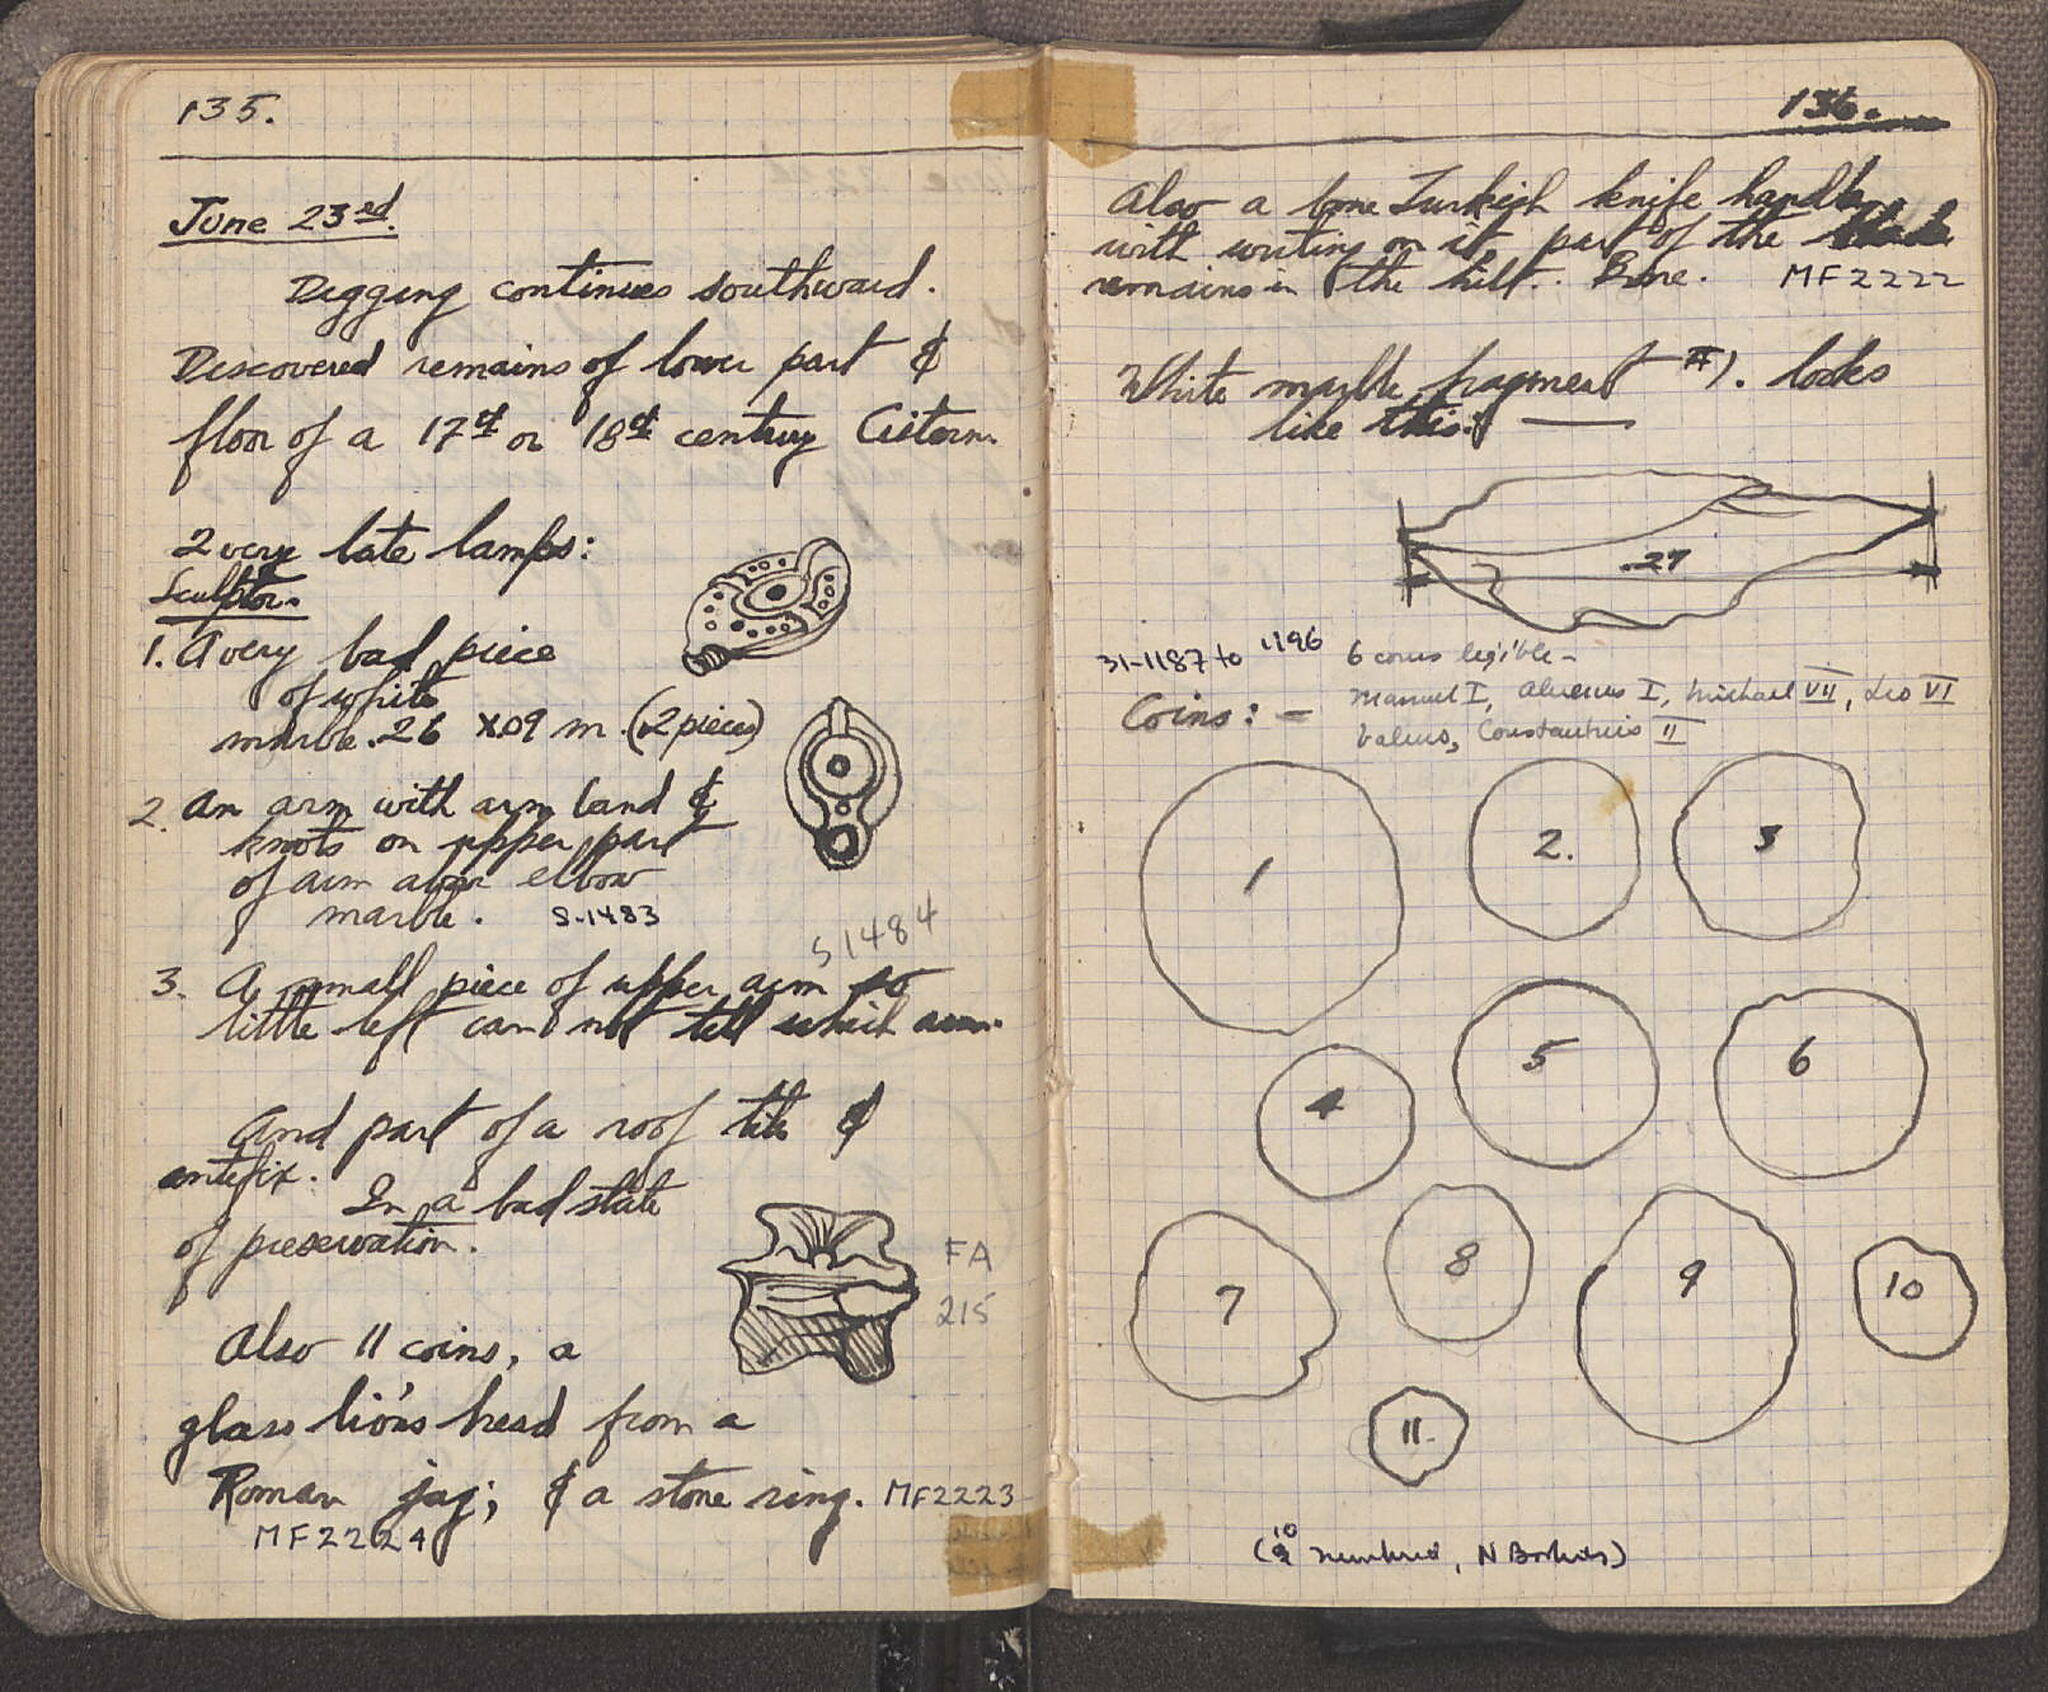 135.
June 23rd.
Digging continues southward.
Discovered remains of lower part &
floor of a 17st or 18st century Cistern.
2 very late lamps:
Sculptor.
1. A very bad piece
of white
marble .26 x.09 m. (2 pieces)
2. An arm with arm band &
knots on upper part
of arm above elbow
marble. S-1483
S1484
3. A small piece of upper arm so
little left can not tell which arm.
And part of a roof tile &
antefix.
In a bad state
of preservation.
FA
215
Also 11 coins, a
glass lion's head from a
Roman jag; & a stone ring. MF2223
MF2224
136.
Also a bone Turkish knife handle
with writing on it, part of the blade
remains in the hilt. . Bone. MF2222
White marble fragment #1. looks
like this:
.27
31-1187 to 1196 6 coins legible -
Manuel I, Alexius I, Michael VII, Leo VI
Coins: - Valens, Constantius II
1
2.
3
4
5
6
7
8
9
10
11.
10
(9 numbered, N Bookies)